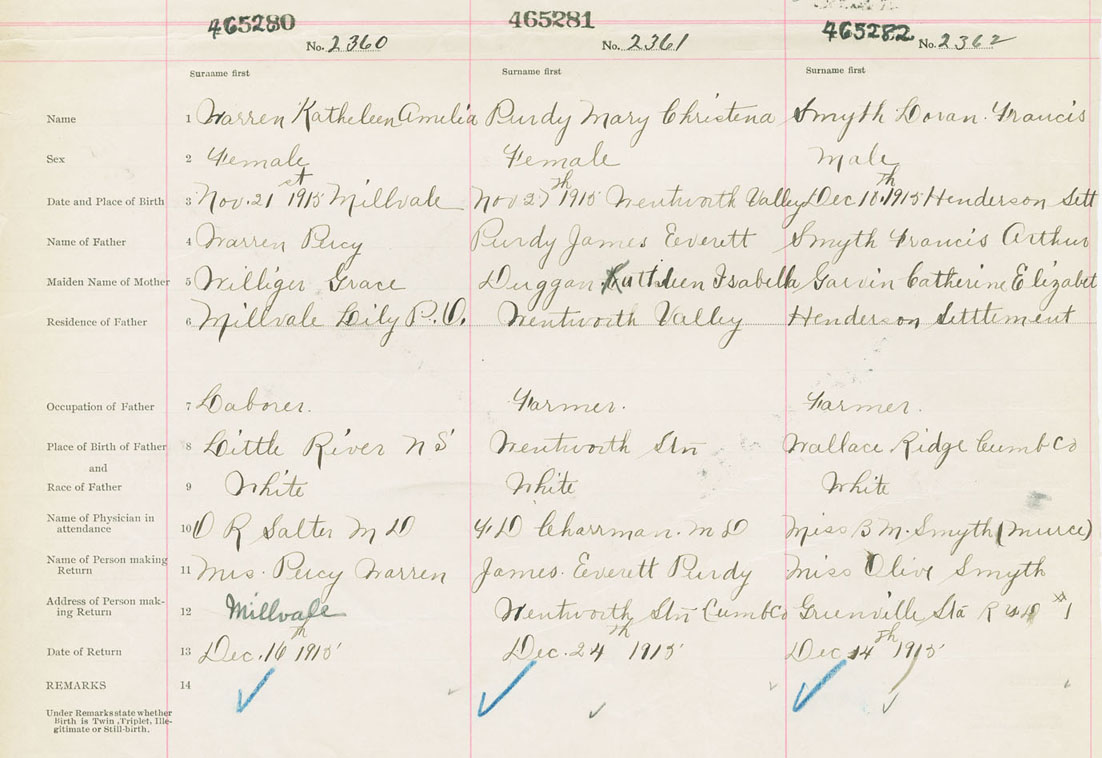 465280 465281 465282
No. 2360 No. 2361 No. 2362
Surname first Surname first Surname first
Name 1 Warren Katheleen Amelia Purdy Mary Christena Smyth Doran Francis
Sex 2 Female Female Male
Date and Place of Birth 3 Nov. 21st 1915 Millvale Nov 27th 1915 Wentworth Valley Dec 10th 1915 Henderson Sett
Name of Father 4 Warren Percy Purdy James Everett Smyth Francis Arthur
Maiden Name of Mother 5 Williger Grace Duggan Kathleen Isabella Garvin Catherine Elizabet
Residence of Father 6 Millvale Lily P.O. Wentworth Valley Henderson Settlement
Occupation of Father 7 Laborer. Farmer. Farmer.
Place of Birth of Father 8 Little River N S Wentworth Stn Wallace Ridge Cumb Co
and
Race of Father 9 White White White
Name of Physician in
attendance 10 D R Salter M D F D Charman. M D Miss B M. Smyth (Nurce)
Name of Person making
Return 11 Mrs. Percy Warren James. Everett Purdy Miss Olive Smyth
Address of Person mak-
ing Return 12 Millvale Wentworth Stn Cumb Co Greenville Sta R F D #1
Date of Return 13 Dec. 16th 1915 Dec. 24th 1915 Dec 14th 1915
REMARKS 14
Under Remarks state whether
Birth is Twin, Triplet, Ille-
gitimate or Still-birth.